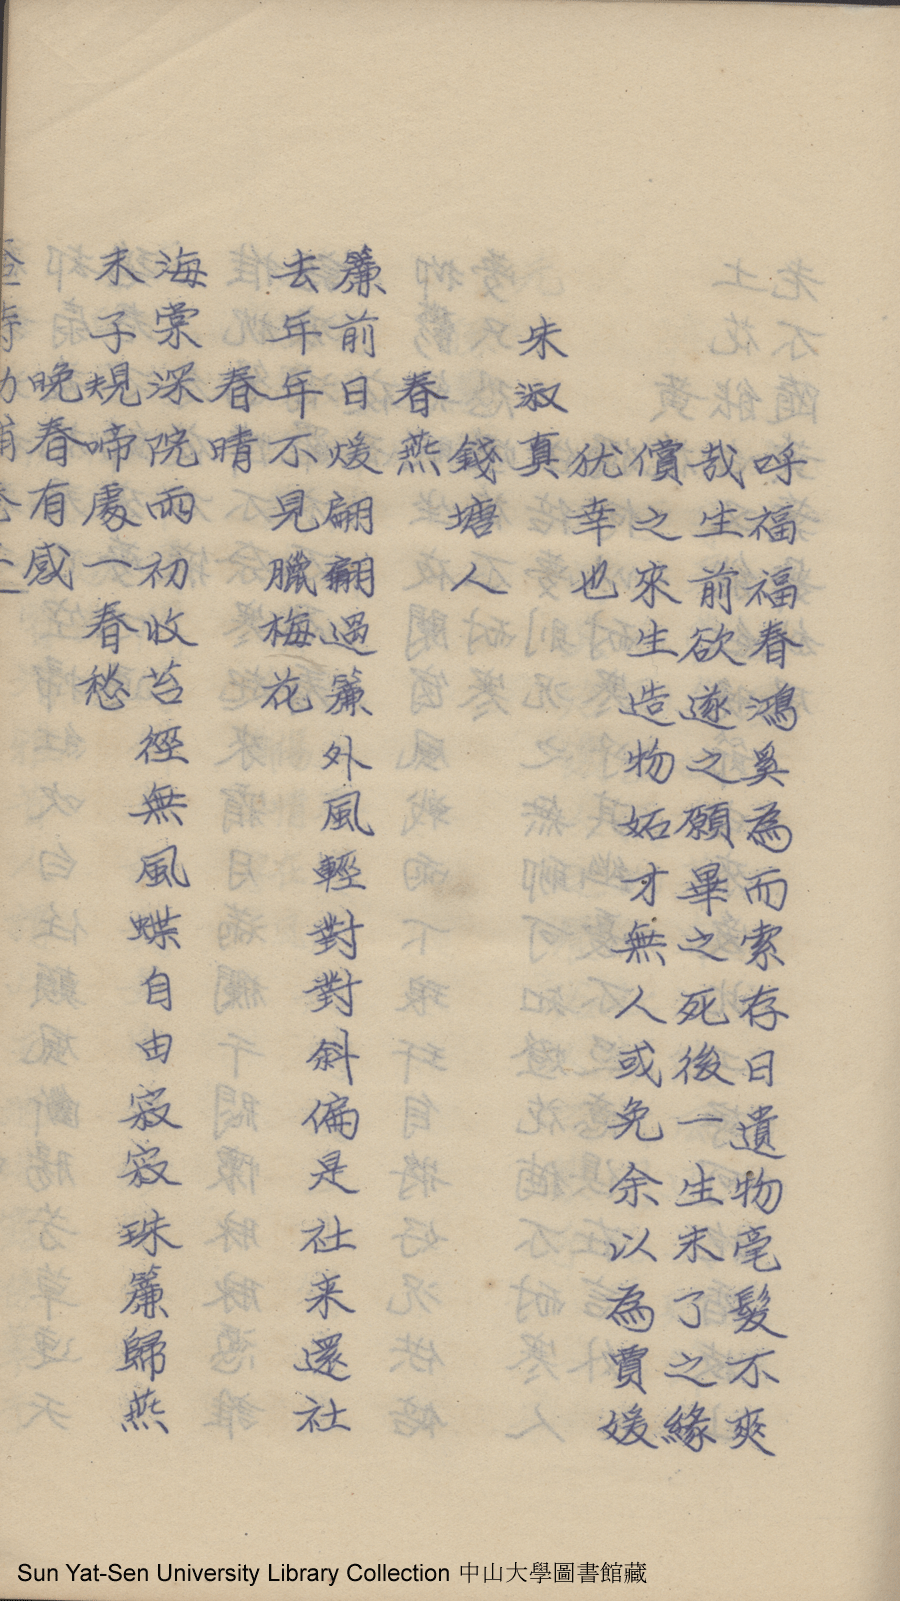 呼福福春鴻奚為而索存日遺物毫髮不爽
哉生前欲遂之願畢之死後一生未了之緣
償之來生造物妬才無人或免余以為賈媛
犹幸也
朱淑真
錢塘人
春燕
簾前日煖翩翩過簾外風輕對對斜偏是社来還社
去年年不見臘梅花
春晴
海棠深院雨初收苔徑無風蝶自由寂寂珠簾歸燕
未子規啼處一春愁
晚春有感
Sun Yat-Sen University Library Collection 中山大學圖書館藏